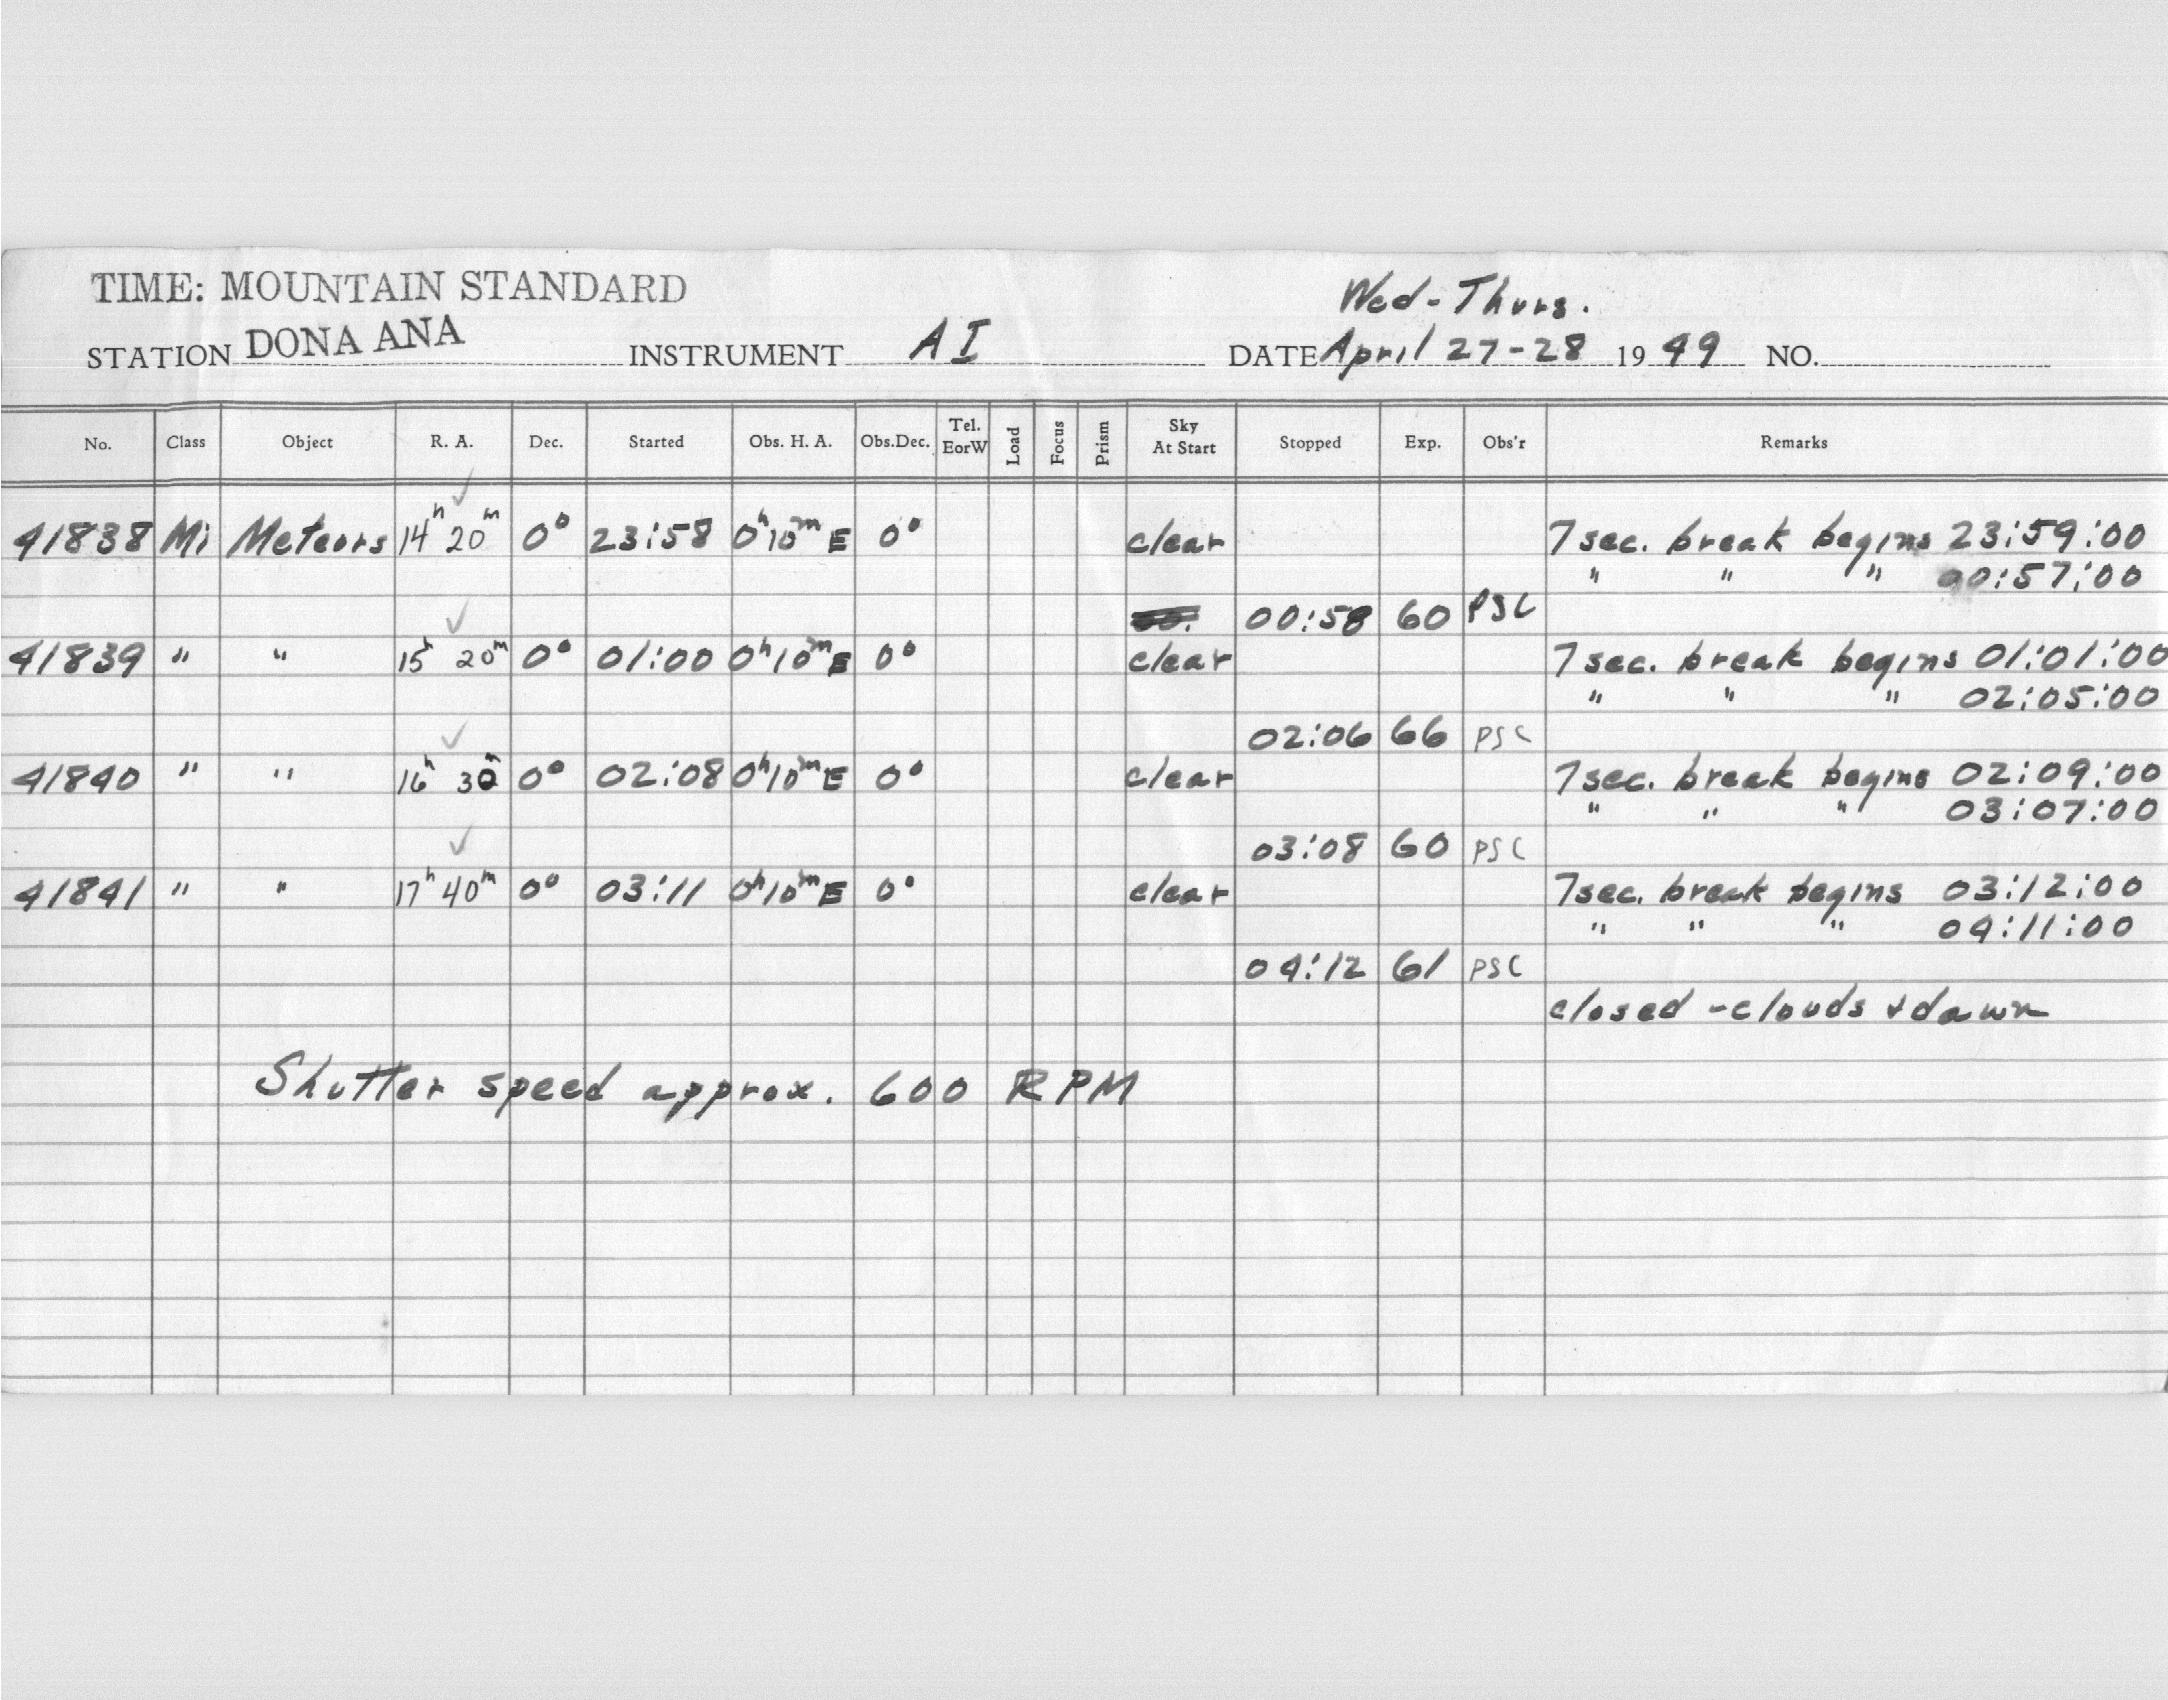 TIME: MOUNTAIN STANDARD
Wed-Thurs.
STATION DONA ANA INSTRUMENT AI DATE April 27-28 1949 NO.
No. Class Object R. A. Dec. Started Obs. H. A. Obs.Dec. Tel. EorW Load Focus Prism Sky At Start Stopped Exp. Obs'r Remarks
41838 Mi Meteors 14h 20m 0° 23:58 0h10m E 0° clear 7 sec. break begins 23:59:00
" " " 00:57:00
00:58 60 PSC
41839 " " 15h 20m 0° 01:00 0h10m E 0° clear 7 sec. break begins 01:01:00
" " " 02:05:00
02:06 66 PSC
41840 " " 16h 30m 0° 02:08 0h10m E 0° clear 7 sec. break begins 02:09:00
" " " 03:07:00
03:08 60 PSC
41841 " " 17h 40m 0° 03:11 0h10m E 0° clear 7 sec. break begins 03:12:00
" " " 04:11:00
04:12 61 PSC
closed - clouds & dawn
Shutter speed approx. 600 RPM